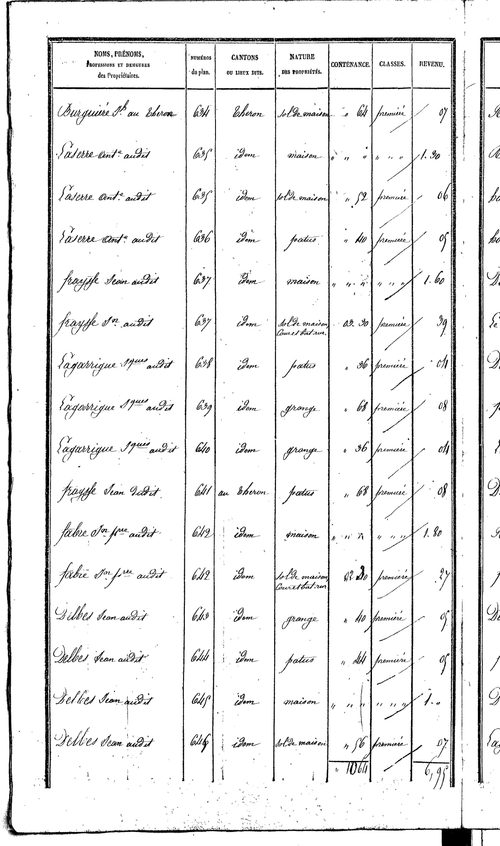 NOMS, PRÉNOMS, PROFESSIONS ET DEMEURES des Propriétaires. NUMÉROS du plan. CANTONS OU LIEUX DITS. NATURE DES PROPRIÉTÉS. CONTENANCE. CLASSES. REVENU.
Burguière Jh au Theron 634 Theron sol de maison " 64 première " 07
Laserre Ante audit 635 idem maison " " " " " " 1.30
Laserre Ante audit 635 idem sol de maison " 52 première " 06
Laserre Ante audit 636 idem patus " 40 première " 05
fraysse Jean audit 637 idem maison " " " " " " 1.60
fraysse Jn audit 637 idem sol de maison 03.30 première " 39
Cour et bat. rur.
Lagarrigue Jques audit 638 idem patus " 36 première " 04
Lagarrigue Jques audit 639 idem grange " 68 première " 08
Lagarrigue Jques audit 640 idem grange " 36 première " 04
fraysse Jean dudit 641 au Theron patus " 68 première " 08
fabre Jn pre audit 642 idem maison " " " " " " 1.80
fabre Jn pre audit 642 idem sol de maison 02 20 première " 27
Cour et bat. rur.
Delbes Jean audit 643 idem grange " 40 première " 05
Delbes Jean audit 644 idem patus " 44 première " 05
Delbes Jean audit 645 idem maison " " " " " " 1. "
Delbes Jean audit 646 idem sol de maison " 56 première " 07
" 10 64 6,95